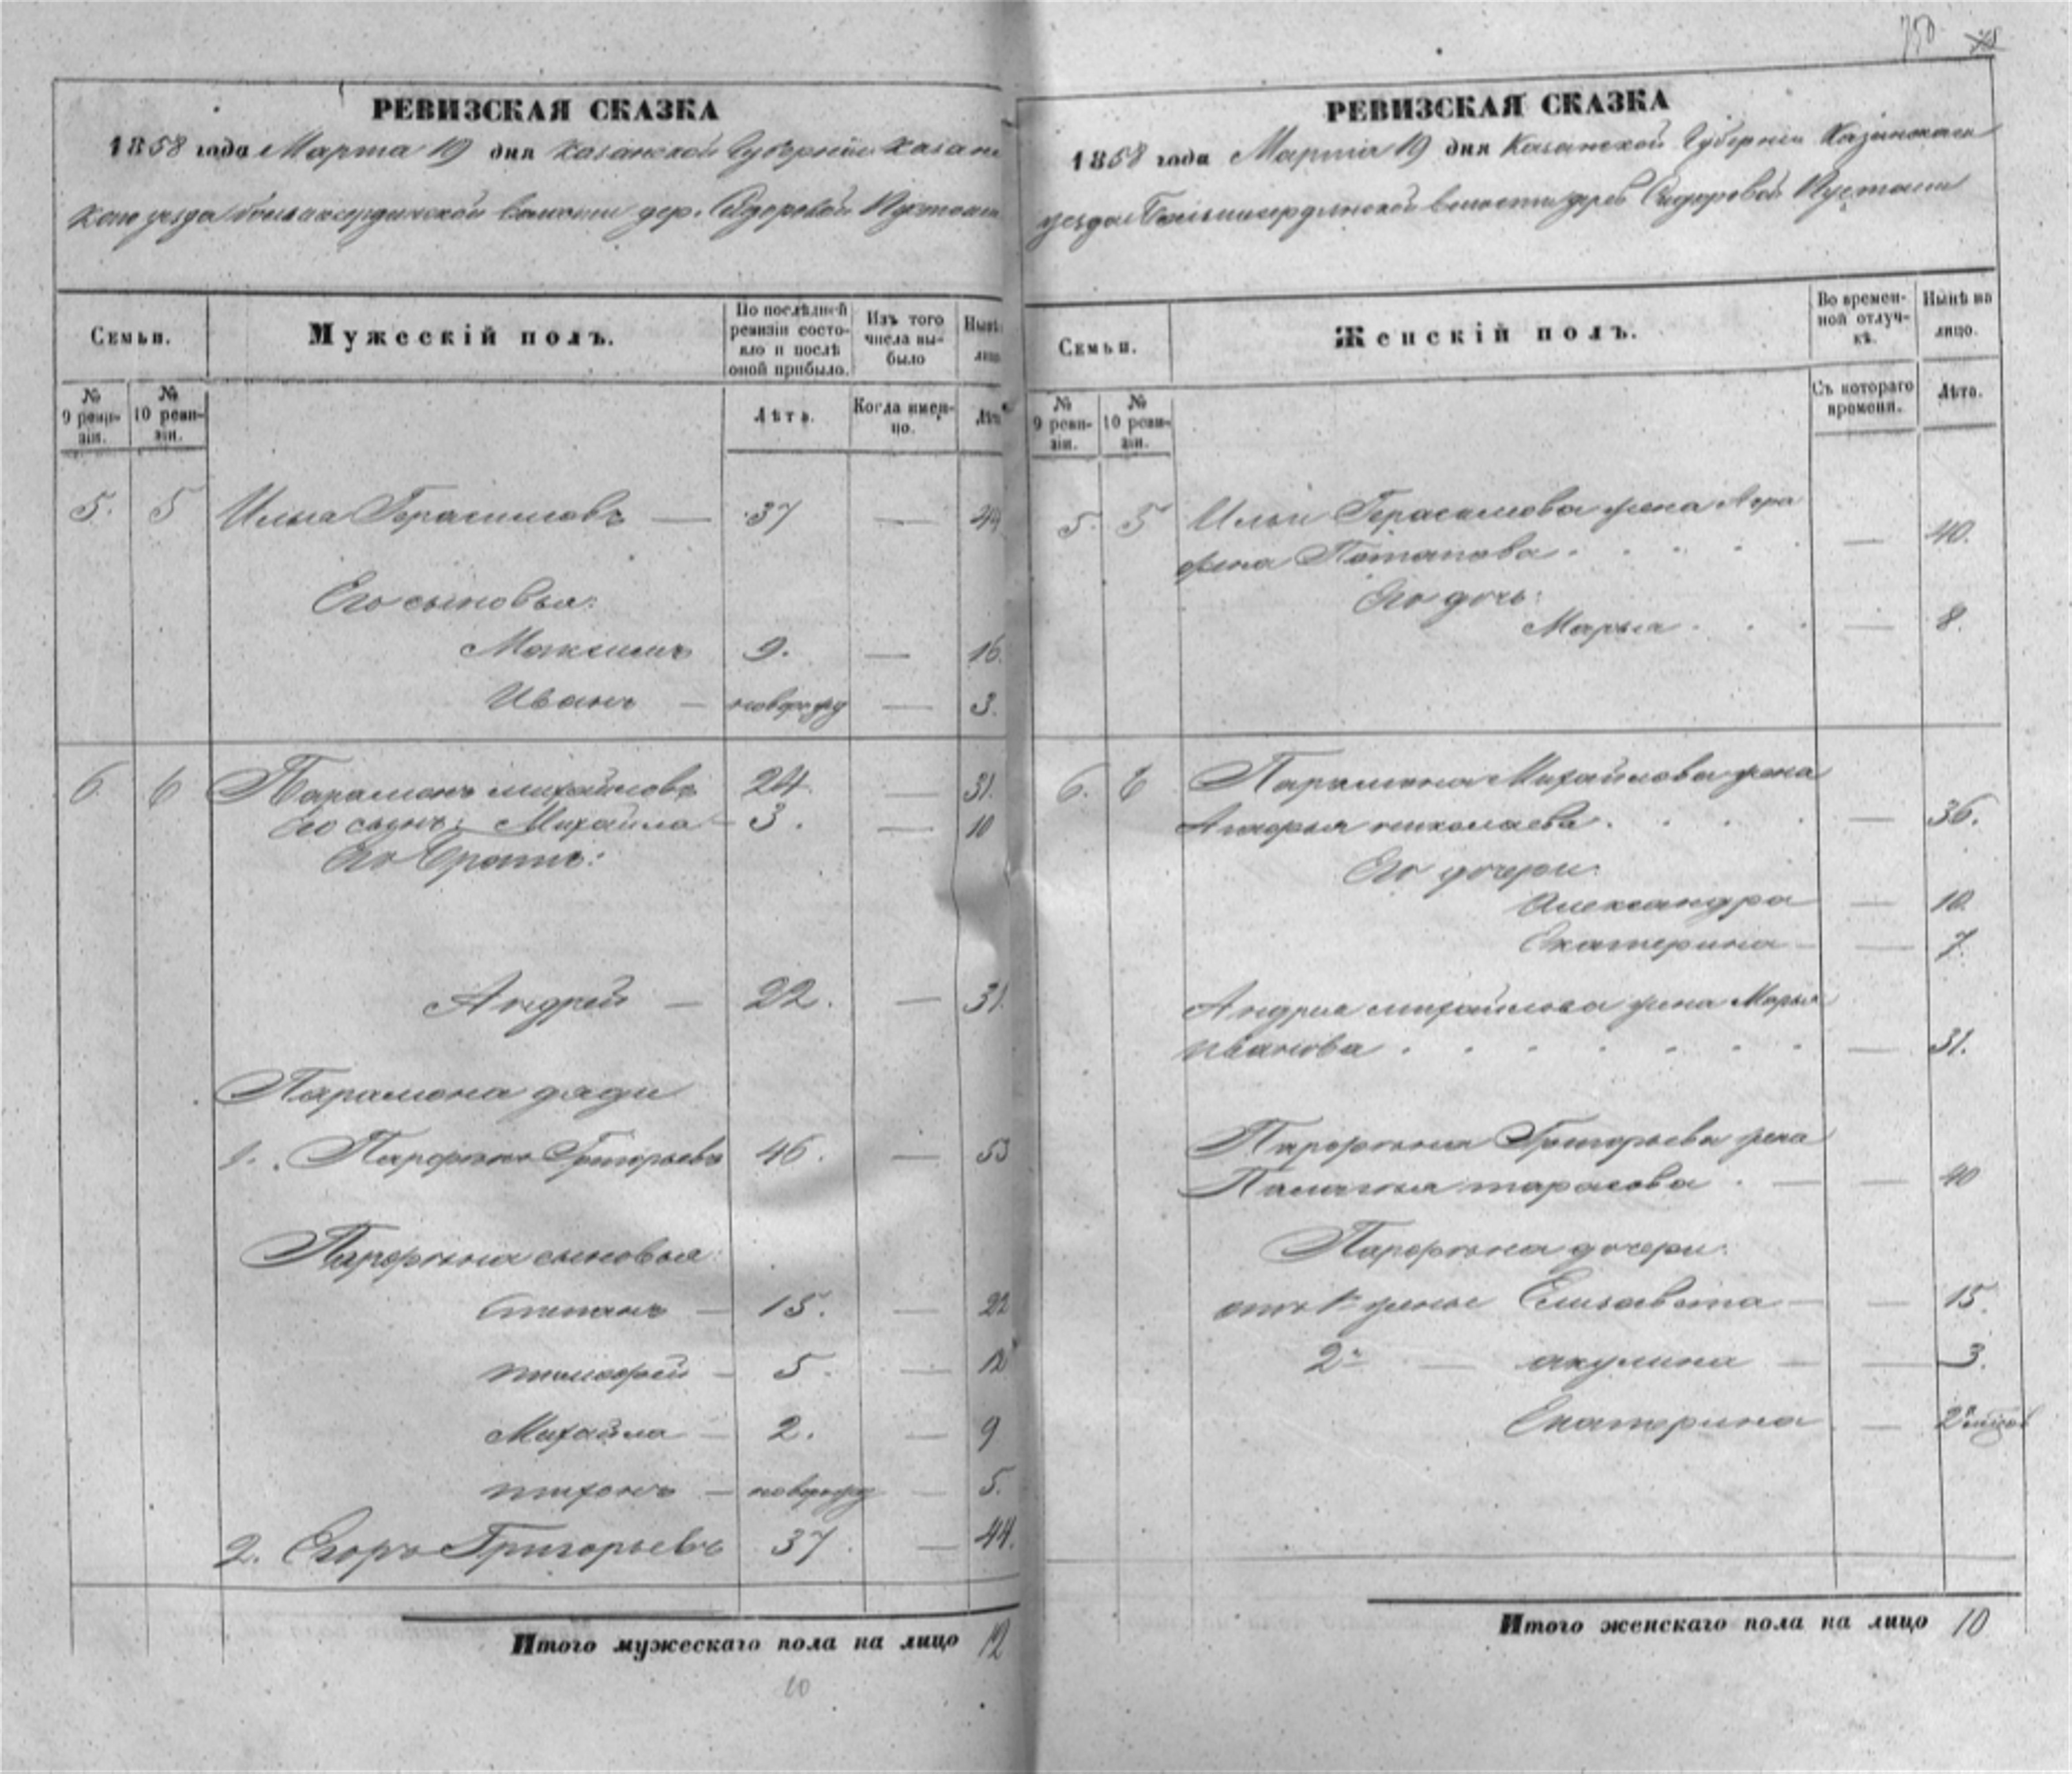 750
РЕВИЗСКАЯ СКАЗКА
1858 года Марта 19 дня Казанской Губернiи Казан
каго уезда Большаклординской волости дер. Сидоровой Пустоши
Семьи.
Мужескiй полъ.
По послѣдней ревизiи состояло и послѣ оной прибыло.
Изъ того числа выбыло
Нынѣ
лицо
№ 9 ревизiи.
№ 10 ревизiи.
Лѣта.
Когда именно.
Лѣта
5. 5 Илья Герасимовъ — 37 — 44
Его сыновья:
Максимъ 9. — 16.
Иванъ — новорожд — 3.
6. 6 Парамонъ Михайловъ 24. — 31.
Его сынъ: Михайла — 3. — 10
Его братъ:
Андрей — 22. — 31.
Парамона дяди
1. Парфенъ Григорьевъ 46. — 53
Парфена сыновья:
Степанъ — 15. — 22
Тимофей — 5. — 12
Михайла — 2. — 9
Тихонъ — новорожд — 5.
2. Егоръ Григорьевъ 37. — 44.
Итого мужескаго пола на лицо 12
10
РЕВИЗСКАЯ СКАЗКА
1858 года Марта 19 дня Казанской Губернiи Казанскаго
уезда волости дерев Сидоровой Пустоши
Семьи.
Женскiй полъ.
Во временной отлучкѣ.
Нынѣ на лицо.
№ 9 ревизiи.
№ 10 ревизiи.
Съ котораго времени.
Лѣта.
5. 5 Ильи Герасимова жена Агра
фена Потапова . . . . — 40.
Его дочь:
Марья . . . — 8.
6. 6 Парамона Михайлова жена
Николаева . . . . — 36.
Его дочери:
Александра — 10.
Екатерина — — 7.
Андрея Михайлова жена Марья
Иванова . . . . . . . — 31.
Парфена Григорьева жена
Палагея Тарасова . — — 40
Парфена дочери:
отъ 1й жены Елизавета — — 15.
2й — Акулина — — 3.
Екатерина . — 2
Итого женскаго пола на лицо 10